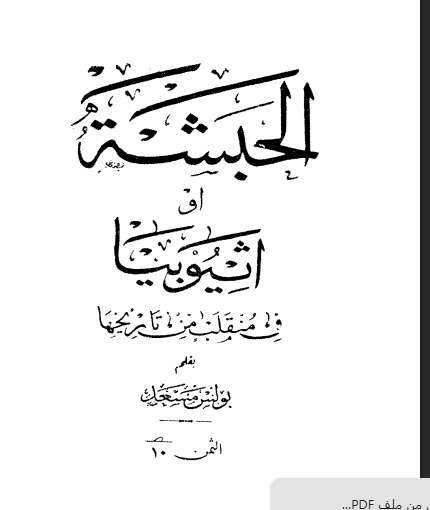 الحبشة
او
اثيوبيا
في منقلب من تاريخها
بقلم
بولس مسعد
الثمن ١٠
من ملف PDF...